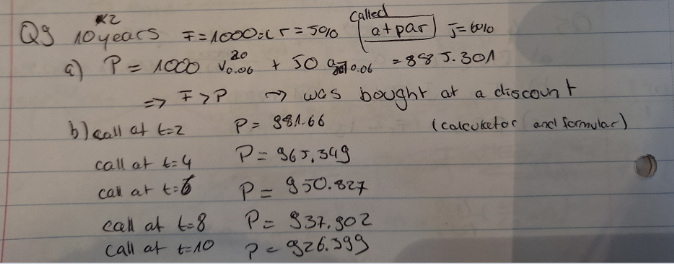 Q9 10 years x2 F=1000=C r=5% called at par J=6%
a) P = 1000 v 20 0.06 + 50 a 20 0.06 = 885.301
=> F>P → was bought at a discount
b) call at t=2 P= 981.66 (calculator and formular)
call at t=4 P= 965.349
call at t=6 P= 950.827
call at t=8 P= 937.902
call at t=10 P= 926.399